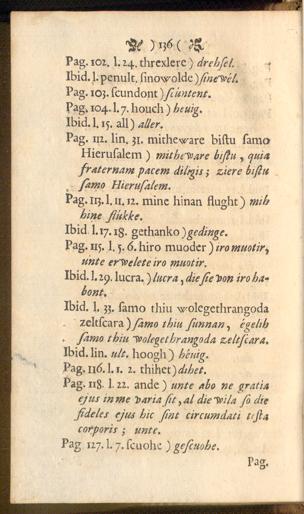 ) 136 (
Pag. 102. l. 24. threxlere ) drehsel.
Ibid. l. penult. sinowolde ) sinewel.
Pag. 103. scundont ) scúntent.
Pag. 104. l. 7. houch ) heuig.
Ibid. l. 15. all ) aller.
Pag. 112. lin. 31. mitheware bistu samo
Hierusalem ) mitheware bistu, quia
fraternam pacem diligis ; ziere bistu
samo Hierusalem.
Pag. 113. l. 11. 12. mine hinan flught ) mih
hine flukke.
Ibid l. 17. 18. gethanko ) gedinge.
Pag. 115. l. 5. 6. hiro muoder ) iro muotir,
unte erwelete iro muotir.
Ibid. l. 29. lucra. ) lucra, die sie von iro ha-
bont.
Ibid. l. 33. samo thiu wolegethrangoda
zeltscara ) samo thiu sunnan, egelih
samo thiu wolegethrangoda zeltscara.
Ibid. lin. ult. hoogh ) héuig.
Pag. 116. l. 1. 2. thihet ) dihet.
Pag. 118. l. 22. ande ) unte abo ne gratia
ejus in me varia sit, al die wila so die
fideles ejus hic sint circumdati testa
corporis ; unte.
Pag 127. l. 7. scuohe ) gescuohe.
Pag.